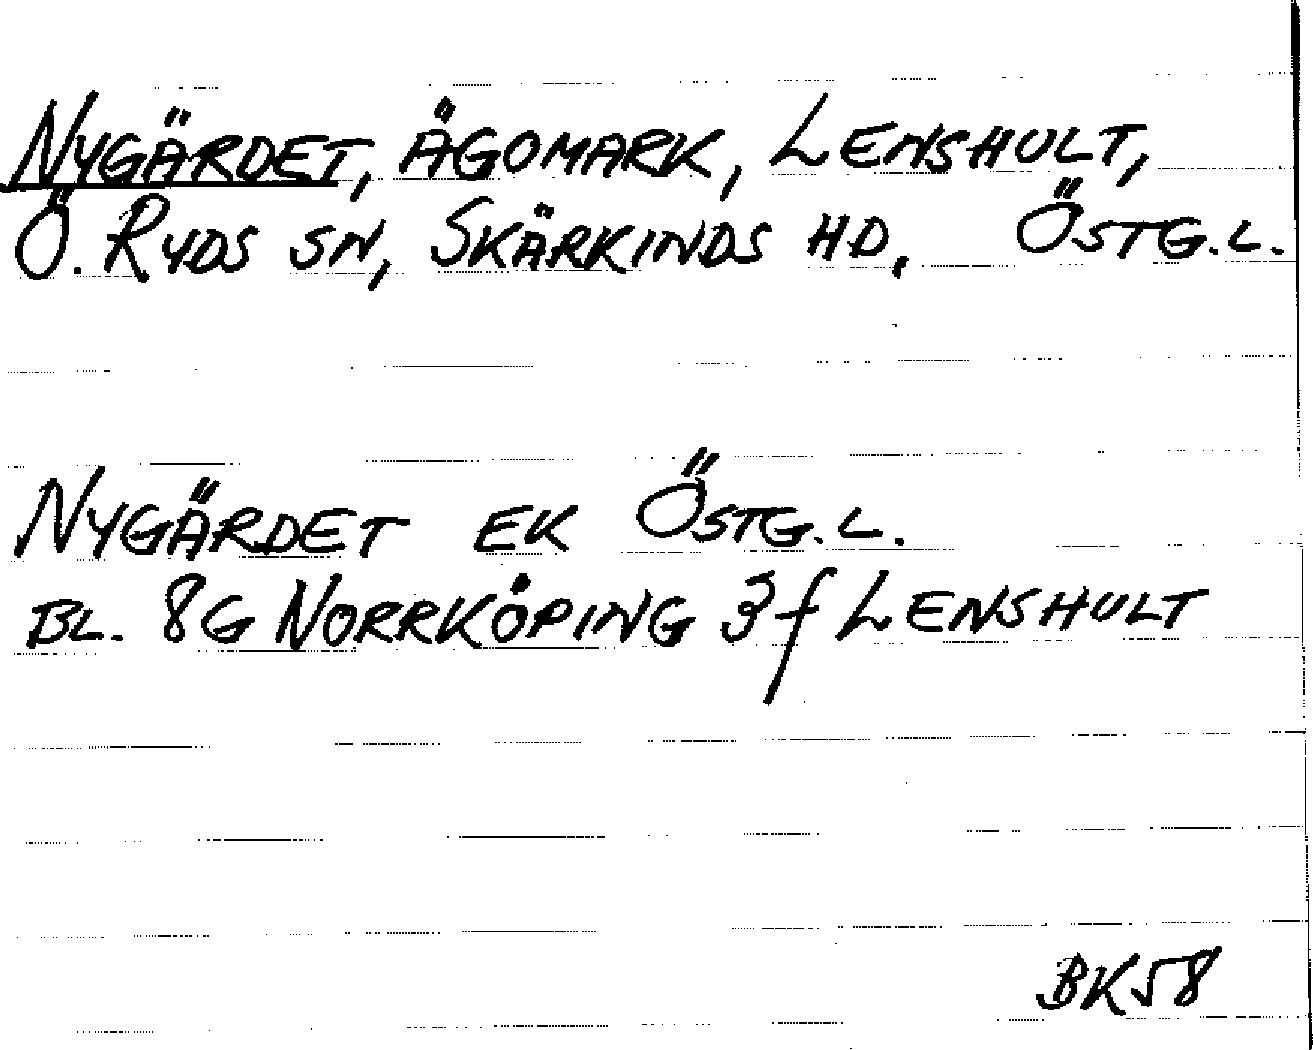 NYGÄRDET, ÄGOMARK, LENSHULT,
Ö. RYDS SN, SKÄRKINDS HD, ÖSTG.L.
NYGÄRDET EK ÖSTG.L.
BL. 8G NORRKÖPING 3f LENSHULT
BK58